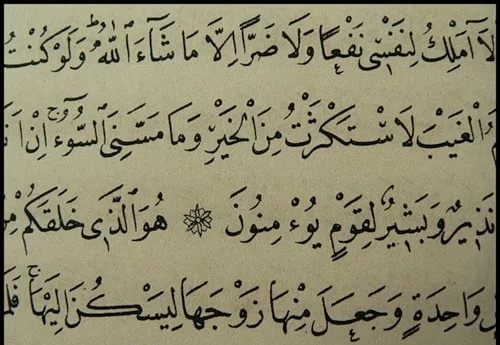 لَا اَمْلِكُ لِنَفْسٖى نَفْعًا وَلَا ضَرًّا اِلَّا مَا شَٓاءَ اللّٰهُ وَلَوْ كُنْتُ
الْغَيْبَ لَاسْتَكْثَرْتُ مِنَ الْخَيْرِ وَمَا مَسَّنِىَ السُّٓوءُ اِنْ اَنَ
نَذٖيرٌ وَبَشٖيرٌ لِقَوْمٍ يُؤْمِنُونَ ۞ هُوَ الَّذٖى خَلَقَكُمْ مِنْ
وَاحِدَةٍ وَجَعَلَ مِنْهَا زَوْجَهَا لِيَسْكُنَ اِلَيْهَا فَلَمَّ